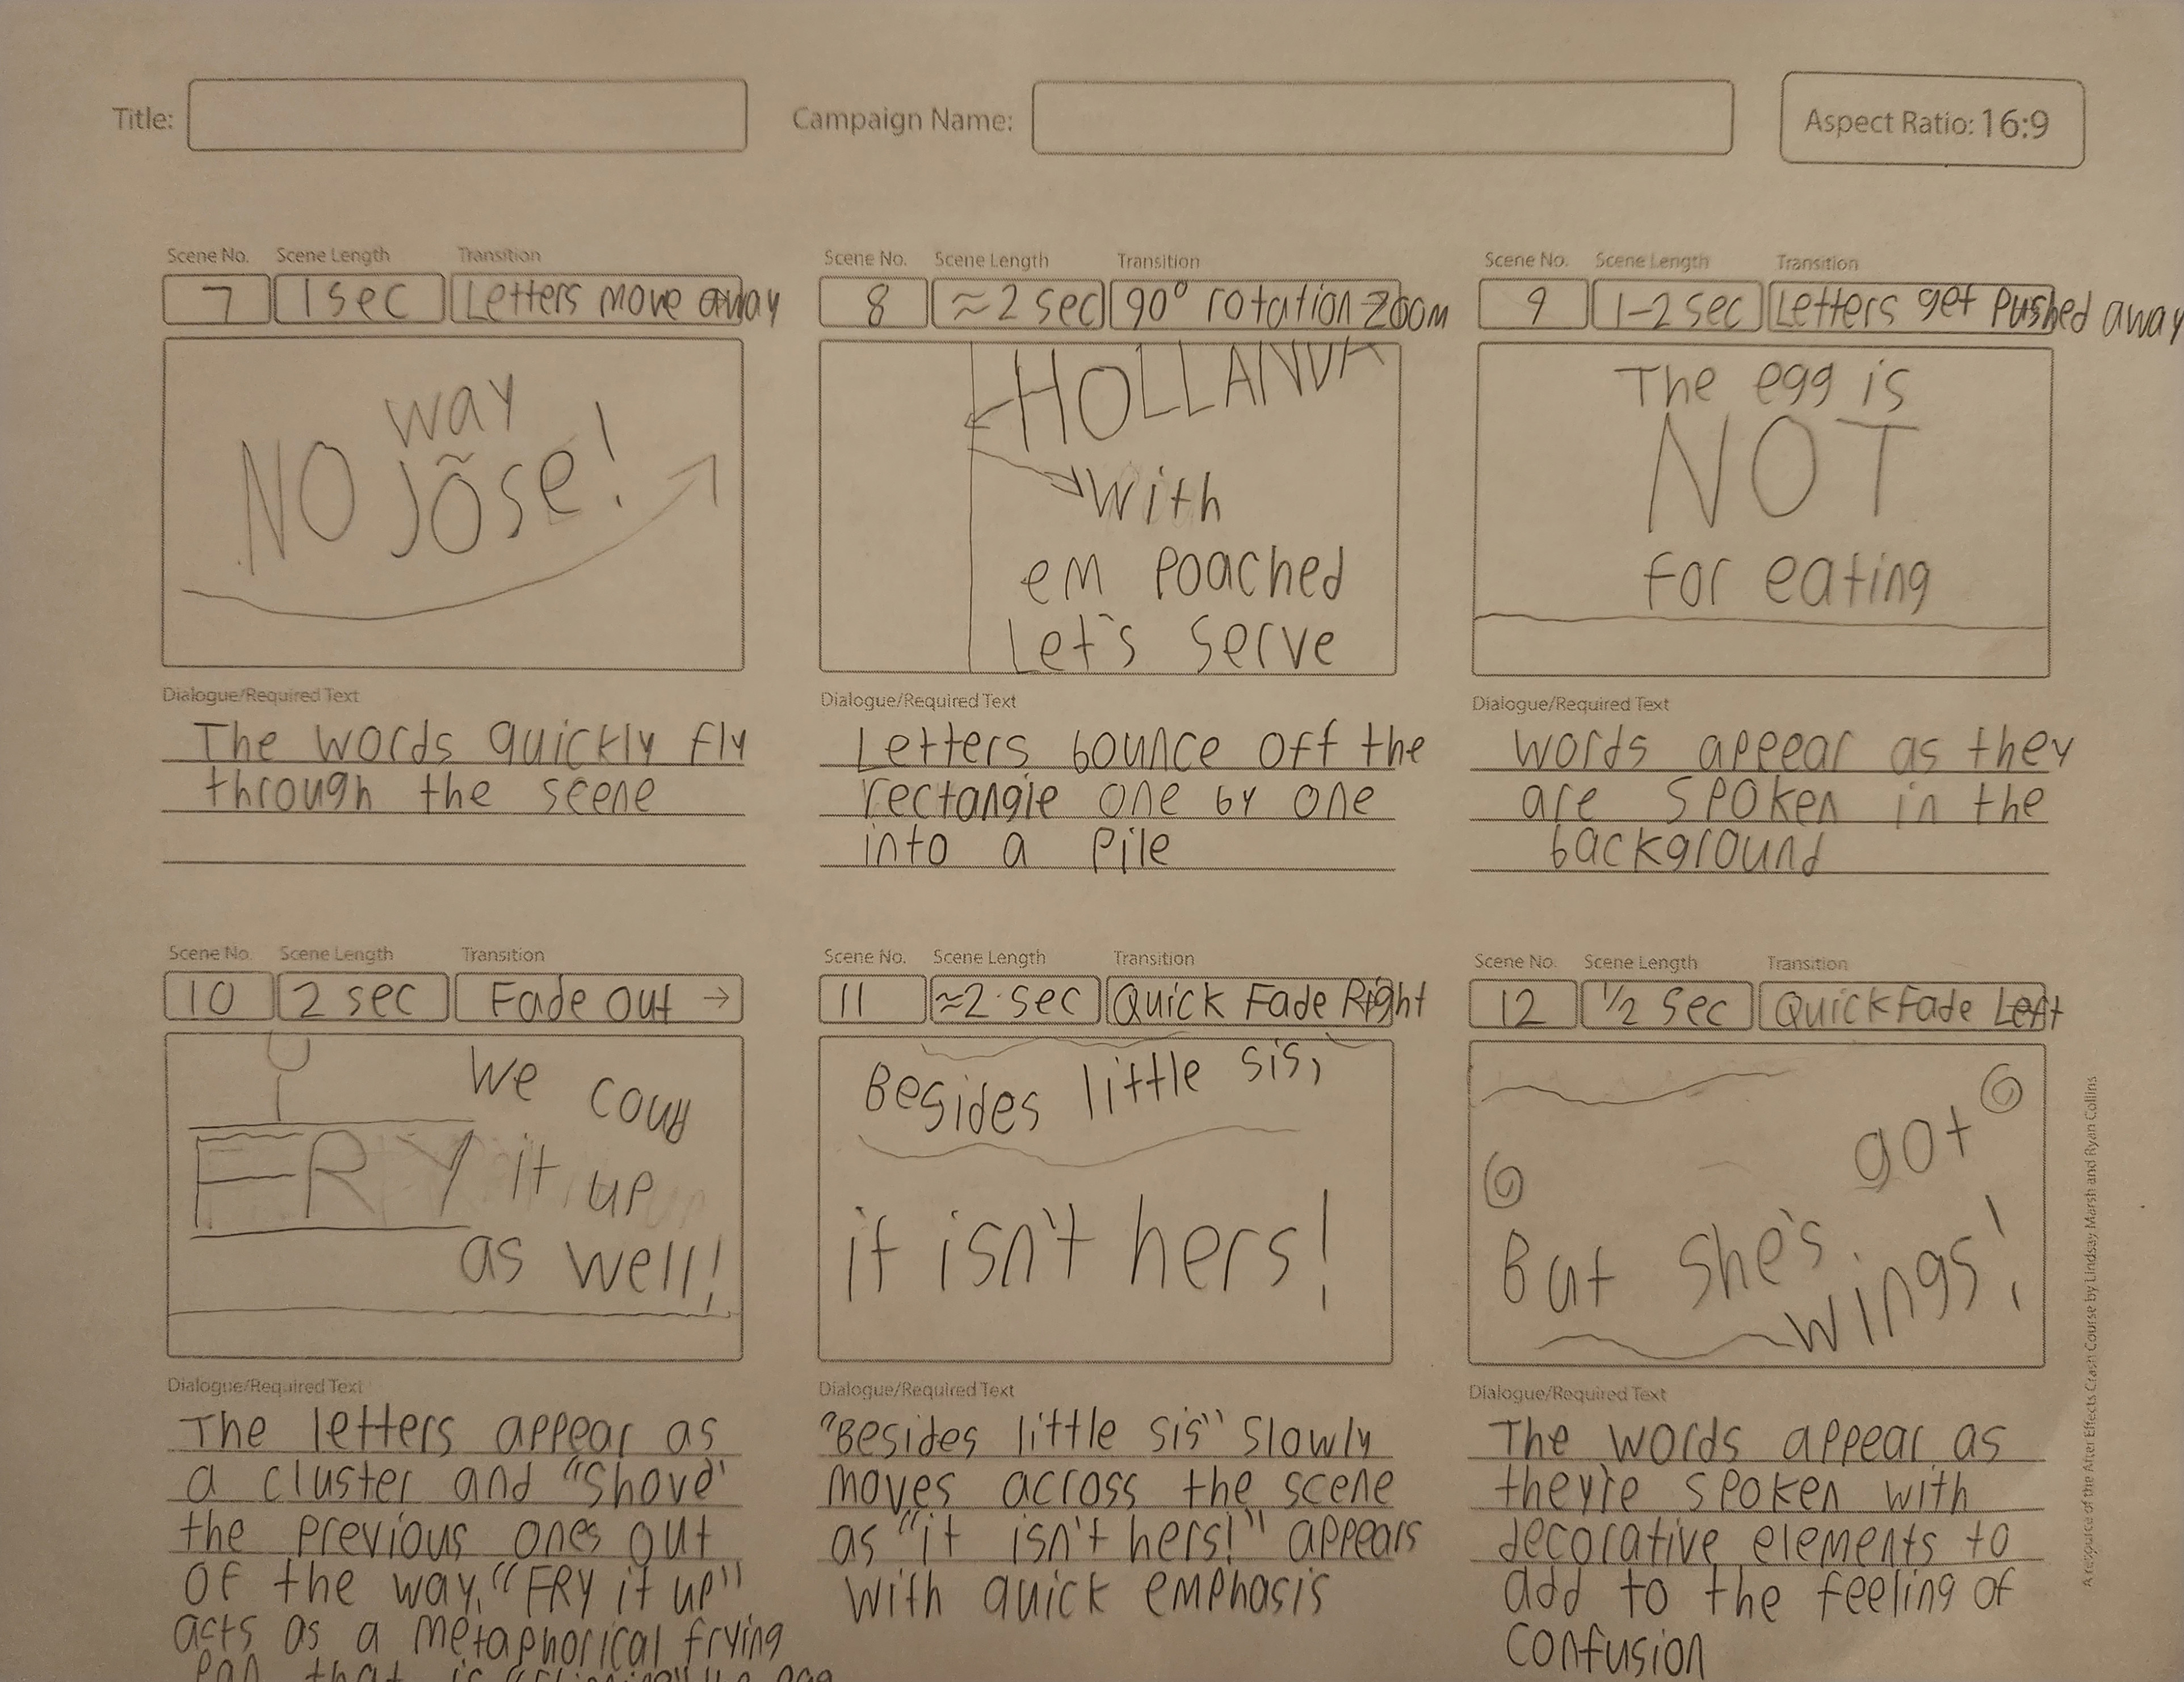 Title:
Campaign Name:
Aspect Ratio: 16:9
Scene No. Scene Length Transition
7 1 sec Letters move away
way
NO Jõse!
Dialogue/Required Text
The words quickly fly
through the scene
Scene No. Scene Length Transition
8 ≈2 sec 90° rotation zoom
HOLLANDA
With
em poached
Let's serve
Dialogue/Required Text
Letters bounce off the
rectangle one by one
into a pile
Scene No. Scene Length Transition
9 1-2 sec Letters get pushed away
The egg is
NOT
for eating
Dialogue/Required Text
words appear as they
are spoken in the
background
Scene No. Scene Length Transition
10 2 sec Fade out →
We could
FRY it up
as well!
Dialogue/Required Text
The letters appear as
a cluster and "Shove"
the previous ones out
of the way. "FRY it up"
acts as a metaphorical frying
pan that is
Scene No. Scene Length Transition
11 ≈2 sec Quick Fade Right
Besides little sis,
it isn't hers!
Dialogue/Required Text
"Besides little sis" slowly
moves across the scene
as "it isn't hers!" appears
with quick emphasis
Scene No. Scene Length Transition
12 1/2 sec Quick Fade Left
got
But she's
wings!
Dialogue/Required Text
The words appear as
they're spoken with
decorative elements to
add to the feeling of
confusion
A resource of the After Effects Crash Course by Lindsay Marsh and Ryan Collins